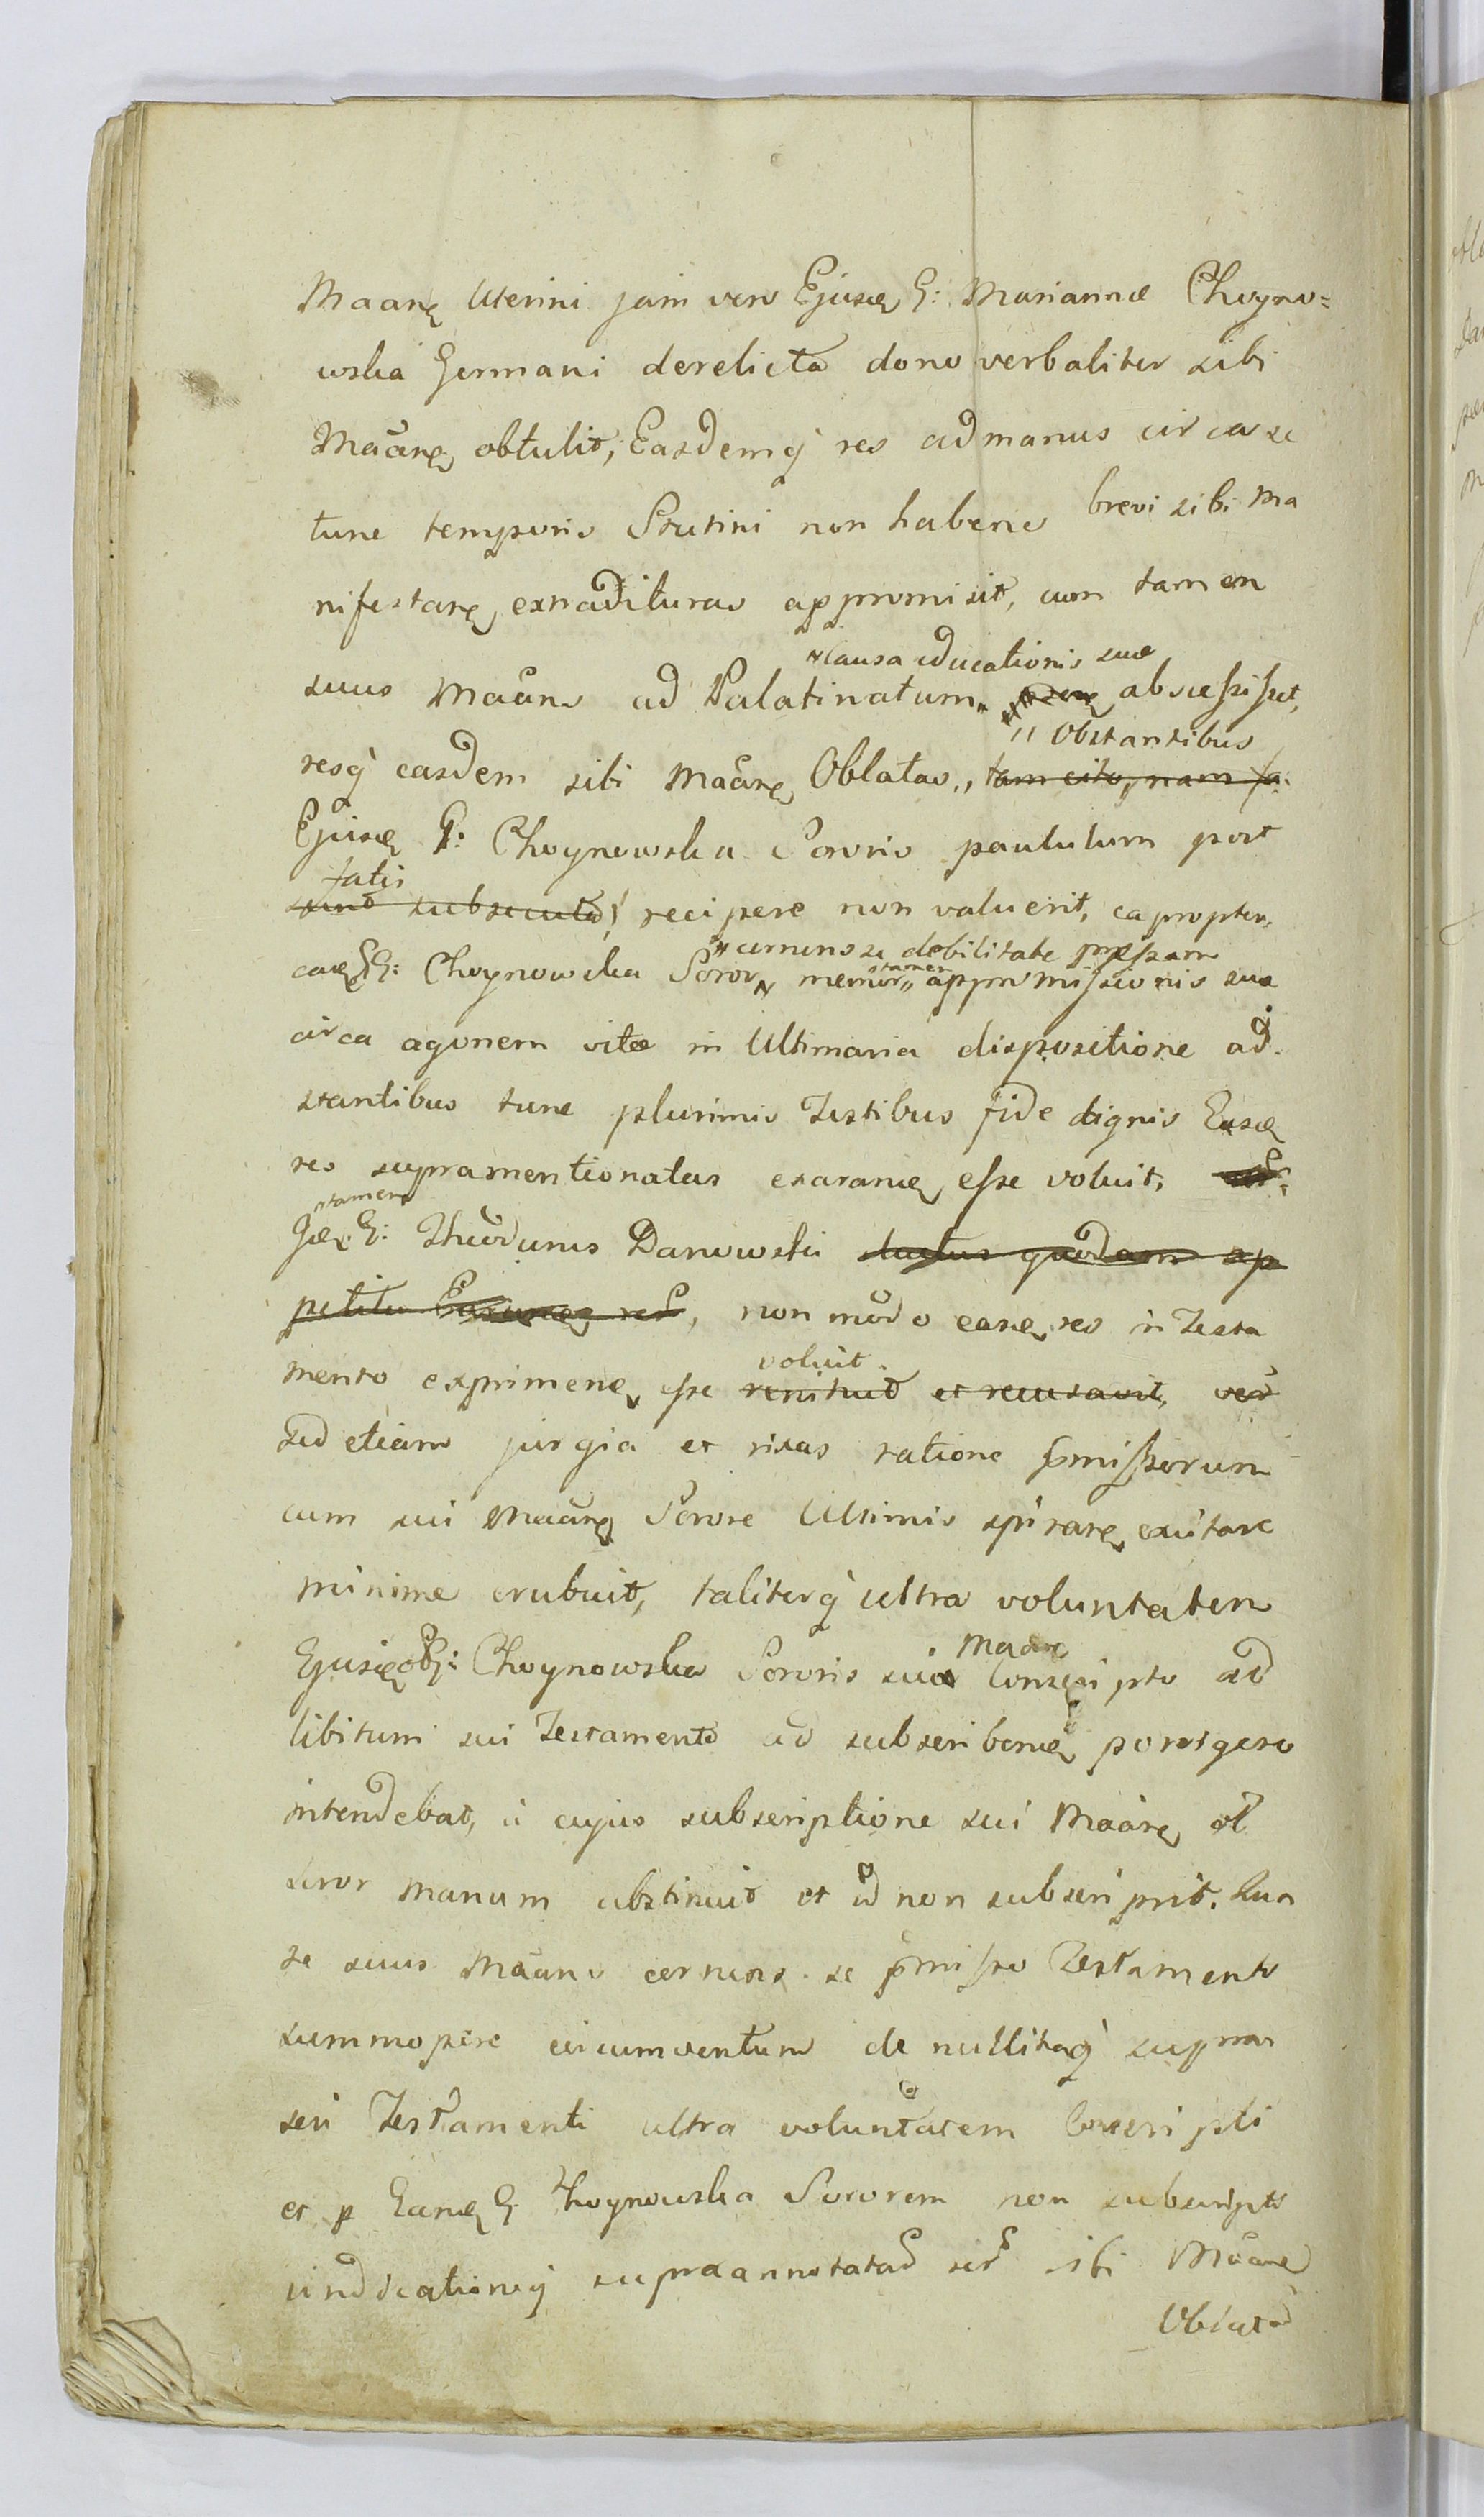 Maanę Uterini jam vero Ejusdę G: Mariannæ Choyno=
wska Germani derelicta dono verbaliter sibi
Maanę obtulit, Easdemq́ res ad manus circa se
tunc temporis Strutini non habens brevi sibi Ma
nifestarę extradituras appromisit, cum tamen
suus Maans ad Palatinatum " causa educationis suæ abscessisset,
resq́ easdem sibi Maanę Oblatas " Obstantibus tam cito, nam fa:
Ejusdę G: Choynowska Sororis paululum post
fatis
subsecuta recipere non valuerit, ea propter,
eadę G: Choynowska Soror " cernens se debilitate pressam memor " tamen appromissionis suæ
circa agonem vitæ in Ultimaria dispositione ad
stantibus tunc plurimis Testibus fide dignis Easdę
res supramentionatas exarandę esse voluit,
tamen
G: Theodorus Danowski luctus quodam ap
petitu, non modo easdę res in Testa
mento exprimendę esse voluit renituit et recusavit, ver
sed etiam jurgia et rixas ratione pmissorum
cum sui Maanę Sorore Ultimis spirarę excitare
minime erubuit, taliterq́ ultra voluntatem
Ejusdę G: Choynowska Sororis suæ Maanę Conscripto ad
libitum sui Testamento ad subscribendę porrigere
intendebat, a cujus subscriptione sui Maanę
soror manum abstinuit et id non subscripsit. Qua
re suus Maans cernens se pmisso Testamento
summopere circumventum de nullitaq́ supra
scri Testamenti ultra voluntatem Conscripti
et p Eandę G Choynowska Sororem non subscripti
vindicationeq́ supraannotatar rer sibi Maanę
Oblatar